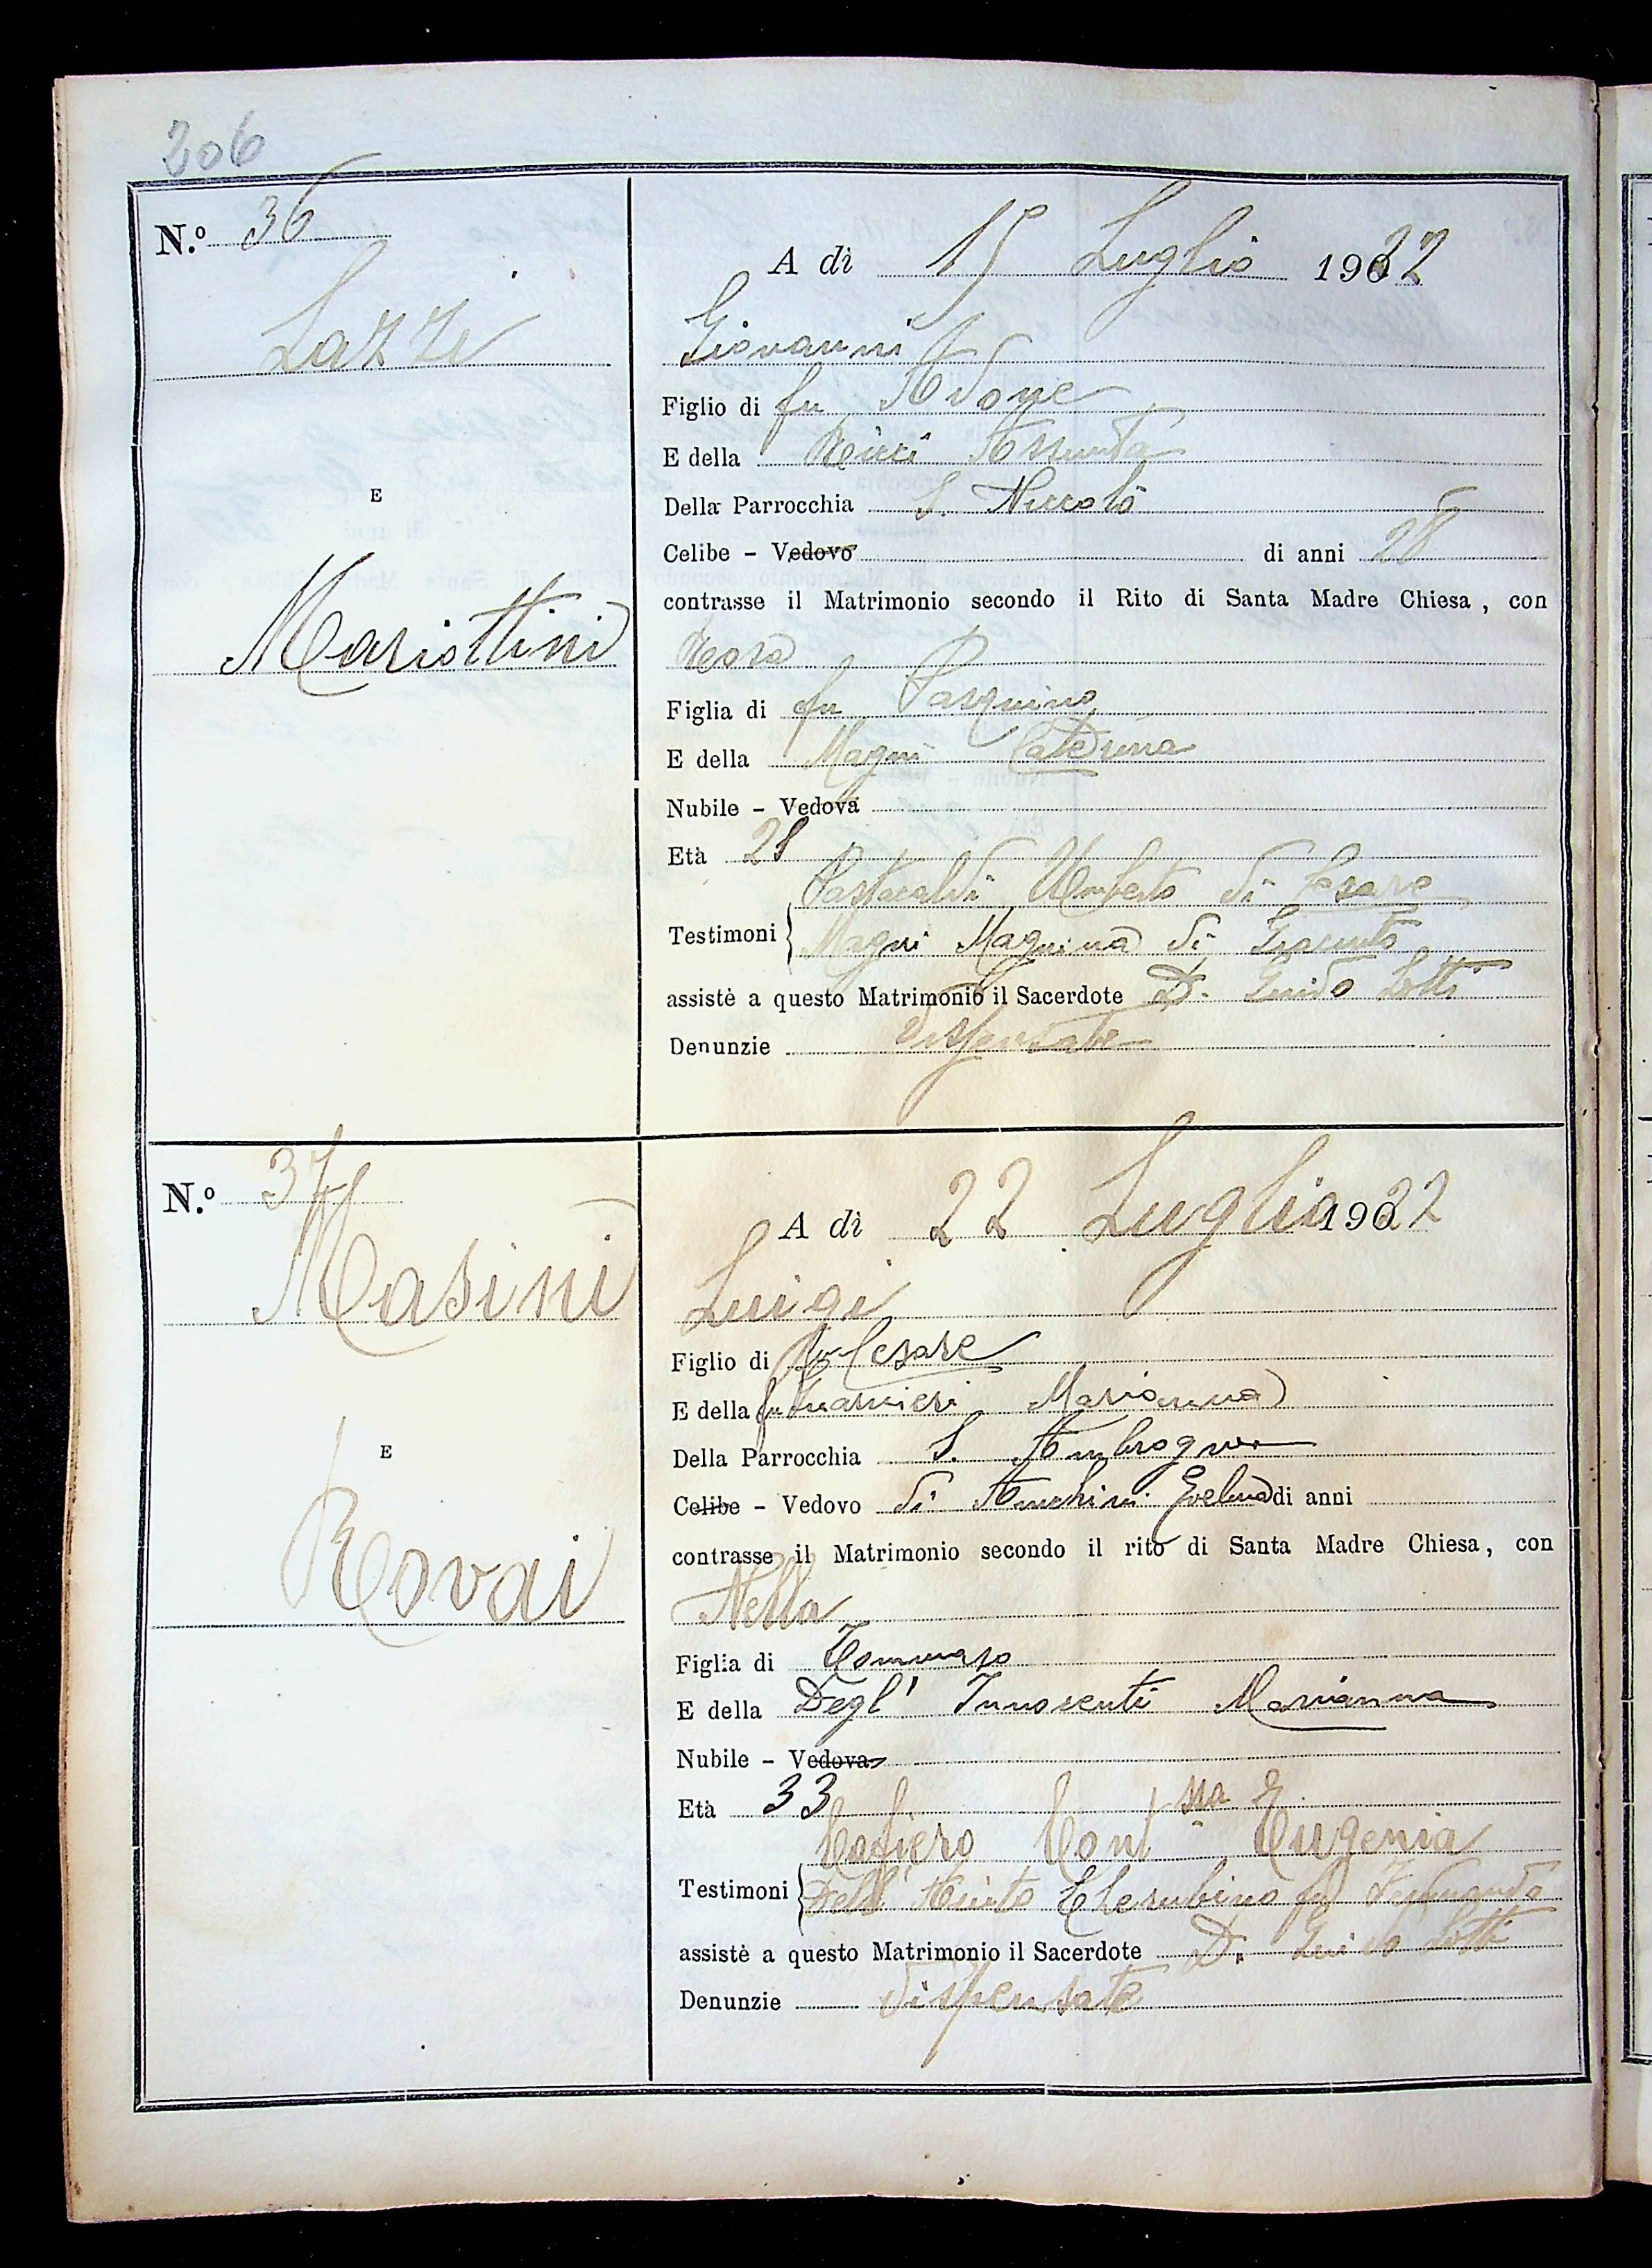 206
N.º 36
A dì 15 Luglio 1922
Lazzi
Giovanni
Figlio di fu Adone
E della Ricci Assunta
Della Parrocchia S. Niccolò
E
Celibe - Vedovo di anni 28
contrasse il Matrimonio secondo il Rito di Santa Madre Chiesa, con
Mariottini
Rosa
Figlia di fu Pasquino
E della Magni Caterina
Nubile - Vedova
Età 28
Pastacaldi Umberto di Cesare
Testimoni Magni Magnina di Giacinto
assistè a questo Matrimonio il Sacerdote D. Guido Lotti
Denunzie dispensate
N.º 37
A dì 22 Luglio 1922
Masini
Luigi
Figlio di fu Cesare
E della fu Marianna
Della Parrocchia S. Ambrogio
E
Celibe - Vedovo di Evelina di anni
contrasse il Matrimonio secondo il rito di Santa Madre Chiesa, con
Rovai
Nella
Figlia di Tommaso
E della Degl' Innocenti Marianna
Nubile - Vedova
Età 33
Cafiero Cont ssa Eugenia
Testimoni Cherubino fu Ferdinando
assistè a questo Matrimonio il Sacerdote D. Guido Lotti
Denunzie dispensate